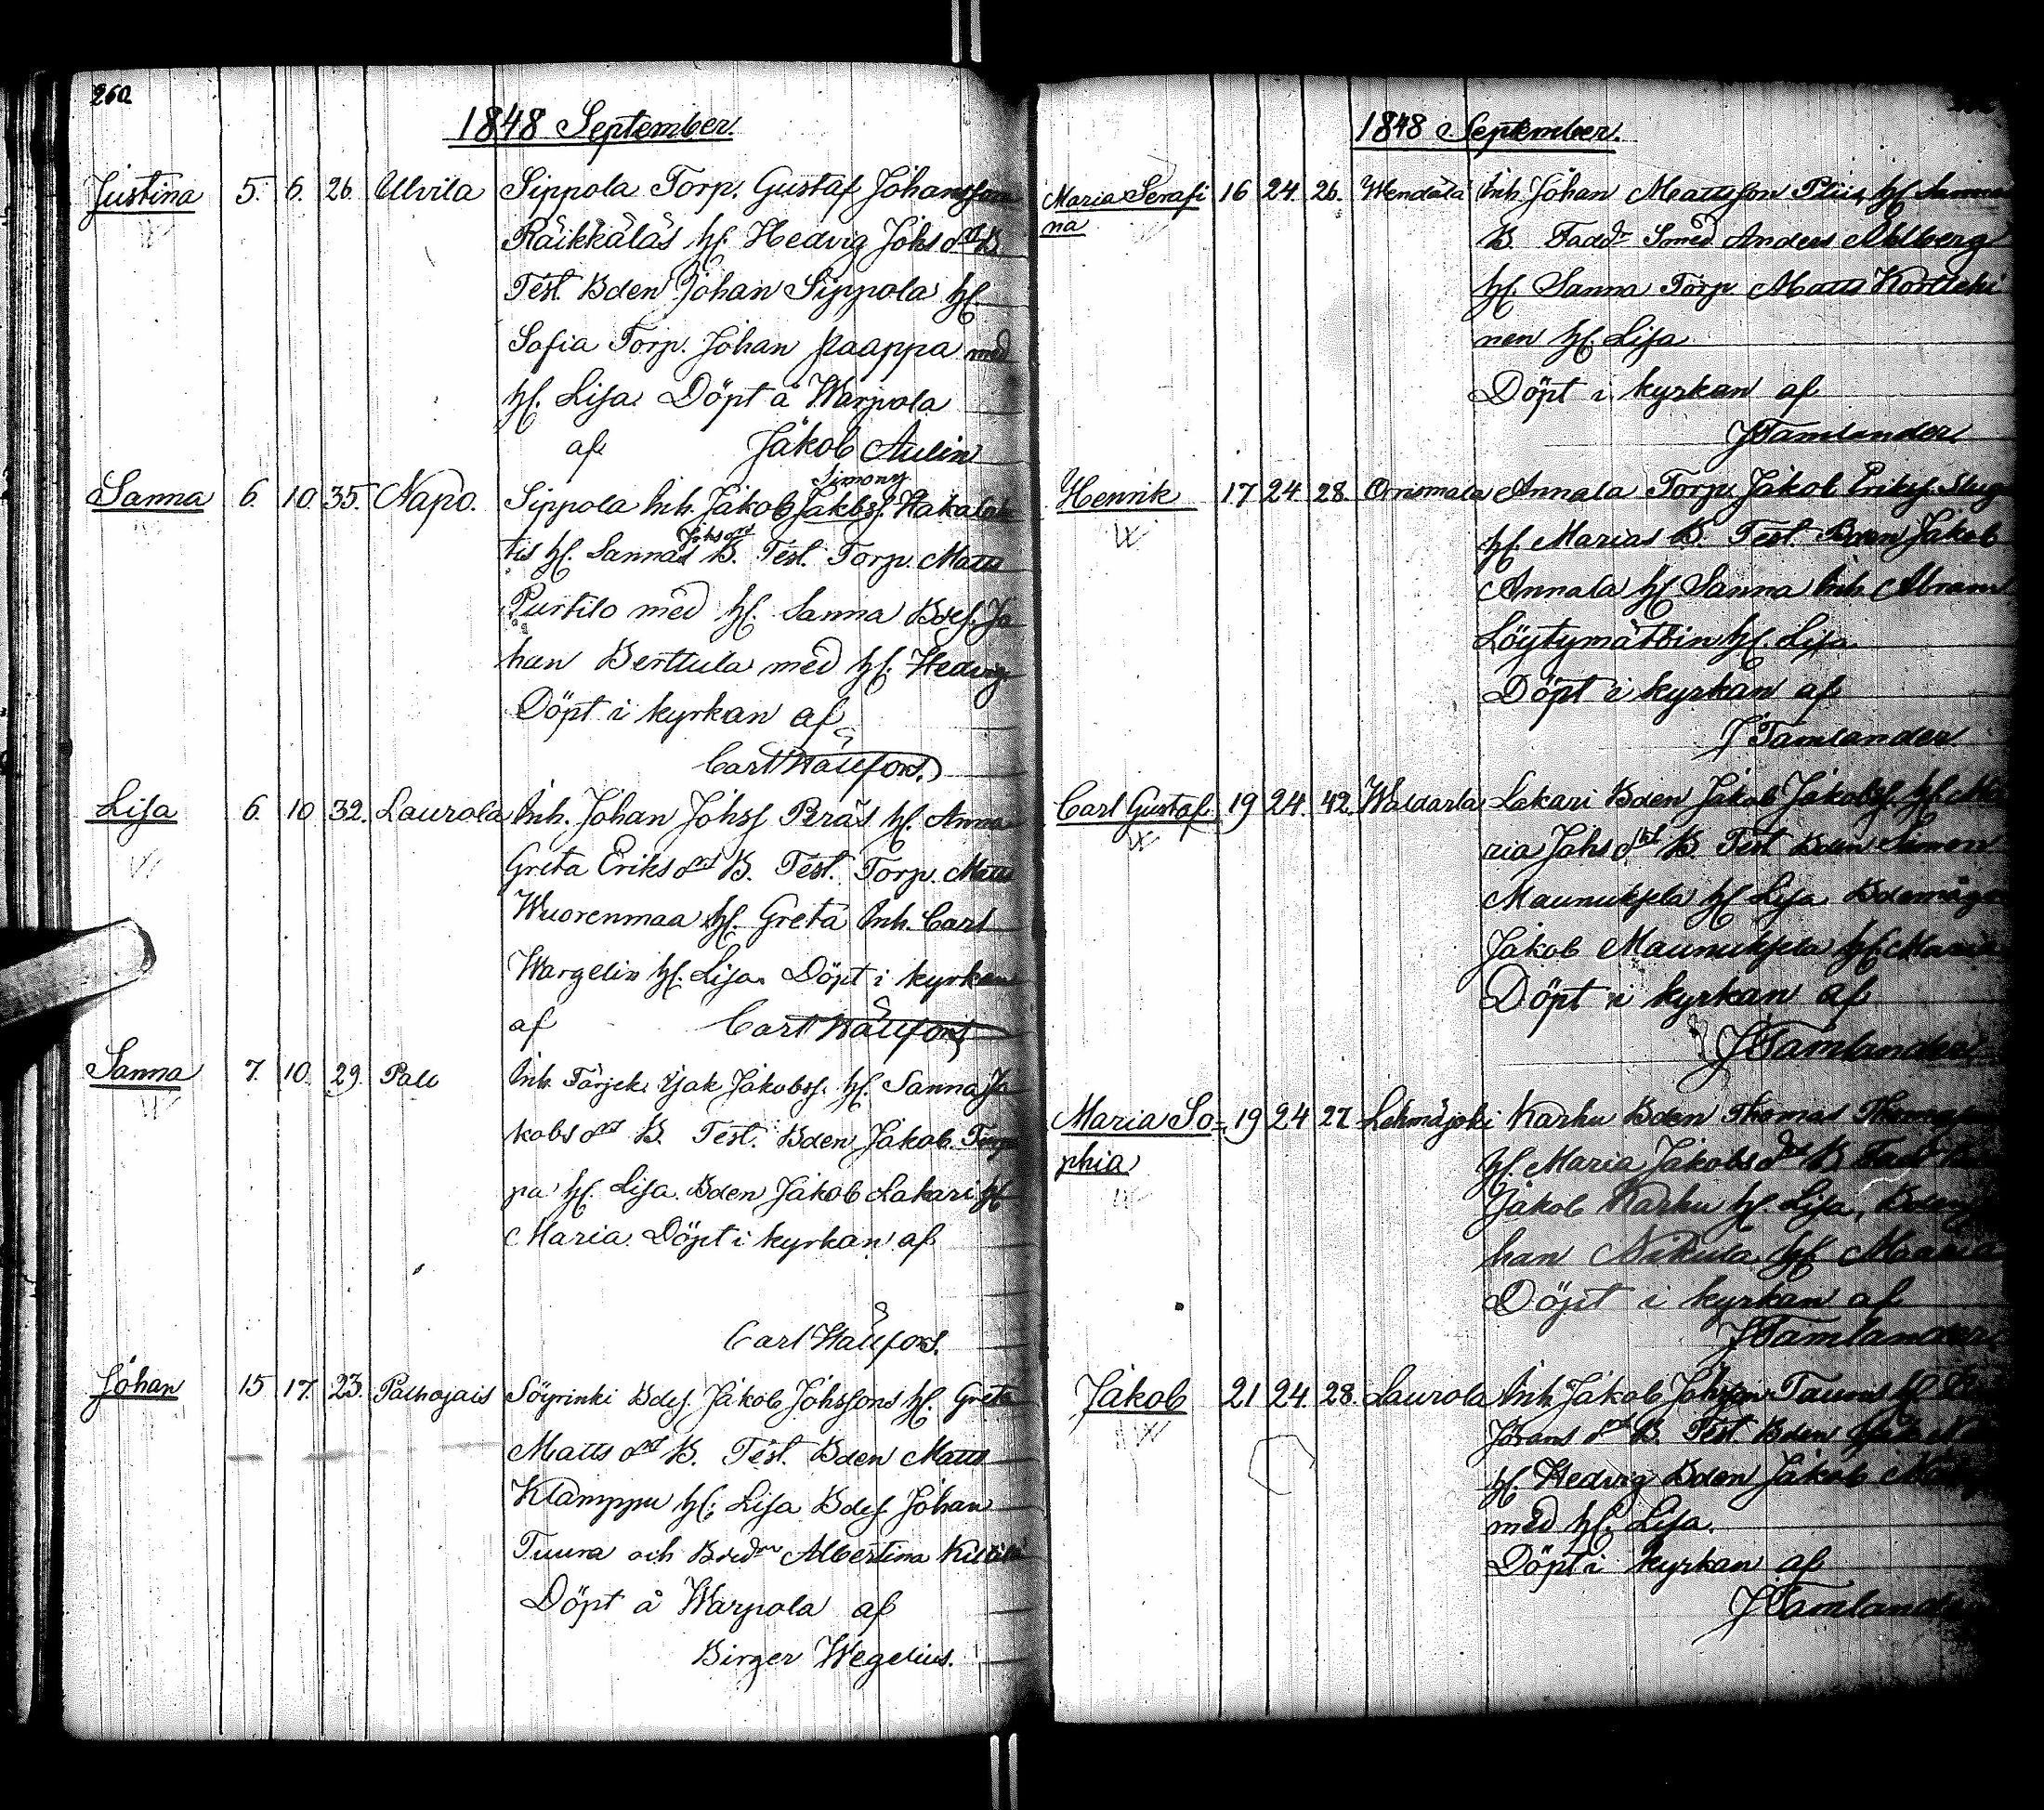 260
1848 September.
Justina 5. 6. 26. Ulvila Sippola Torp. Gustaf Johansson
Räikkäläs hf. Hedvig Johs dr B.
Test. Bden Johan Sippola hf.
Sofia Torp. Johan Paappa med
hf. Lisa. Döpt å Warpola
af Jakob Aulin
Simons
Sanna 6. 10. 35. Napo. Sippola Inh. Jakob Jakbsf.
Johs dr
tis hf. Sannas B. Test. Torp. Matts
Purtilo med hf. Sanna Bdes. Jo
han Berttula med hf. Hedvig
Döpt i kyrkan af
Carl
Lisa 6. 10 32. Laurola Inh. Johan Johsf Peräs hf. Anna
Greta Eriks dr B. Test. Torp. Matts
Wuorenmaa hf. Greta Inh. Carl
Wargelin hf. Lisa. Döpt i kyrkan
af Carl
Sanna 7. 10. 29. Palo Inh. Jakobsf. hf. Sanna Ja
kobs dr B. Test. Bden Jakob
pa hf. Lisa. Bden Jakob Lakari hf
Maria. Döpt i kyrkan af
Carl
Johan 15 17. 23. Söyrinki Bdes. Jakob Johssons hf. Greta
Matts dr B. Test. Bden Matts
Klamppu hf. Lisa Bdes. Johan
Tuura och Albertina
Döpt å Warpola af
Birger Wegelius.
1848 September.
Maria Serafi 16 24. 26. Wendälä Inh. Johan Mattsson hf Sanna
na B. Fadd. Smed Anders Ahlberg
hf. Sanna Torp Matts
nen hf. Lisa
Döpt i kyrkan af
J Tamlander
Henrik 17 24. 28. Orismala Annala Torp. Jakob Eriksf.
hf. Marias B. Test. Jakob
Annala hf Sanna Inh. Abram
hf. Lisa.
Döpt i kyrkan af
J Tamlander
Carl Gustaf 19 24. 42. Lakari Bden Jakob Jakobsf. hf. Ma
ria Johs dr B Test Bden Simon
Maunuksela hf Lisa Bdemågen
Jakob Maunuksela hf. Maria
Döpt i kyrkan af
J Tamlander
Maria So= 19 24 27 Lehmäjoki Karhu Bden Thomas
phia hf. Maria Jakobs dr B
Jakob Karhu hf. Lisa,
han Nikula hf. Maria
Döpt i kyrkan af
J Tamlander
Jakob 21 24. 28. Laurola Inh. Jakob Johsson hf
Jörans dr B. Test. Bden
hf. Hedvig Bden Jakob
med hf. Lisa.
Döpt i kyrkan af
J Tamlander